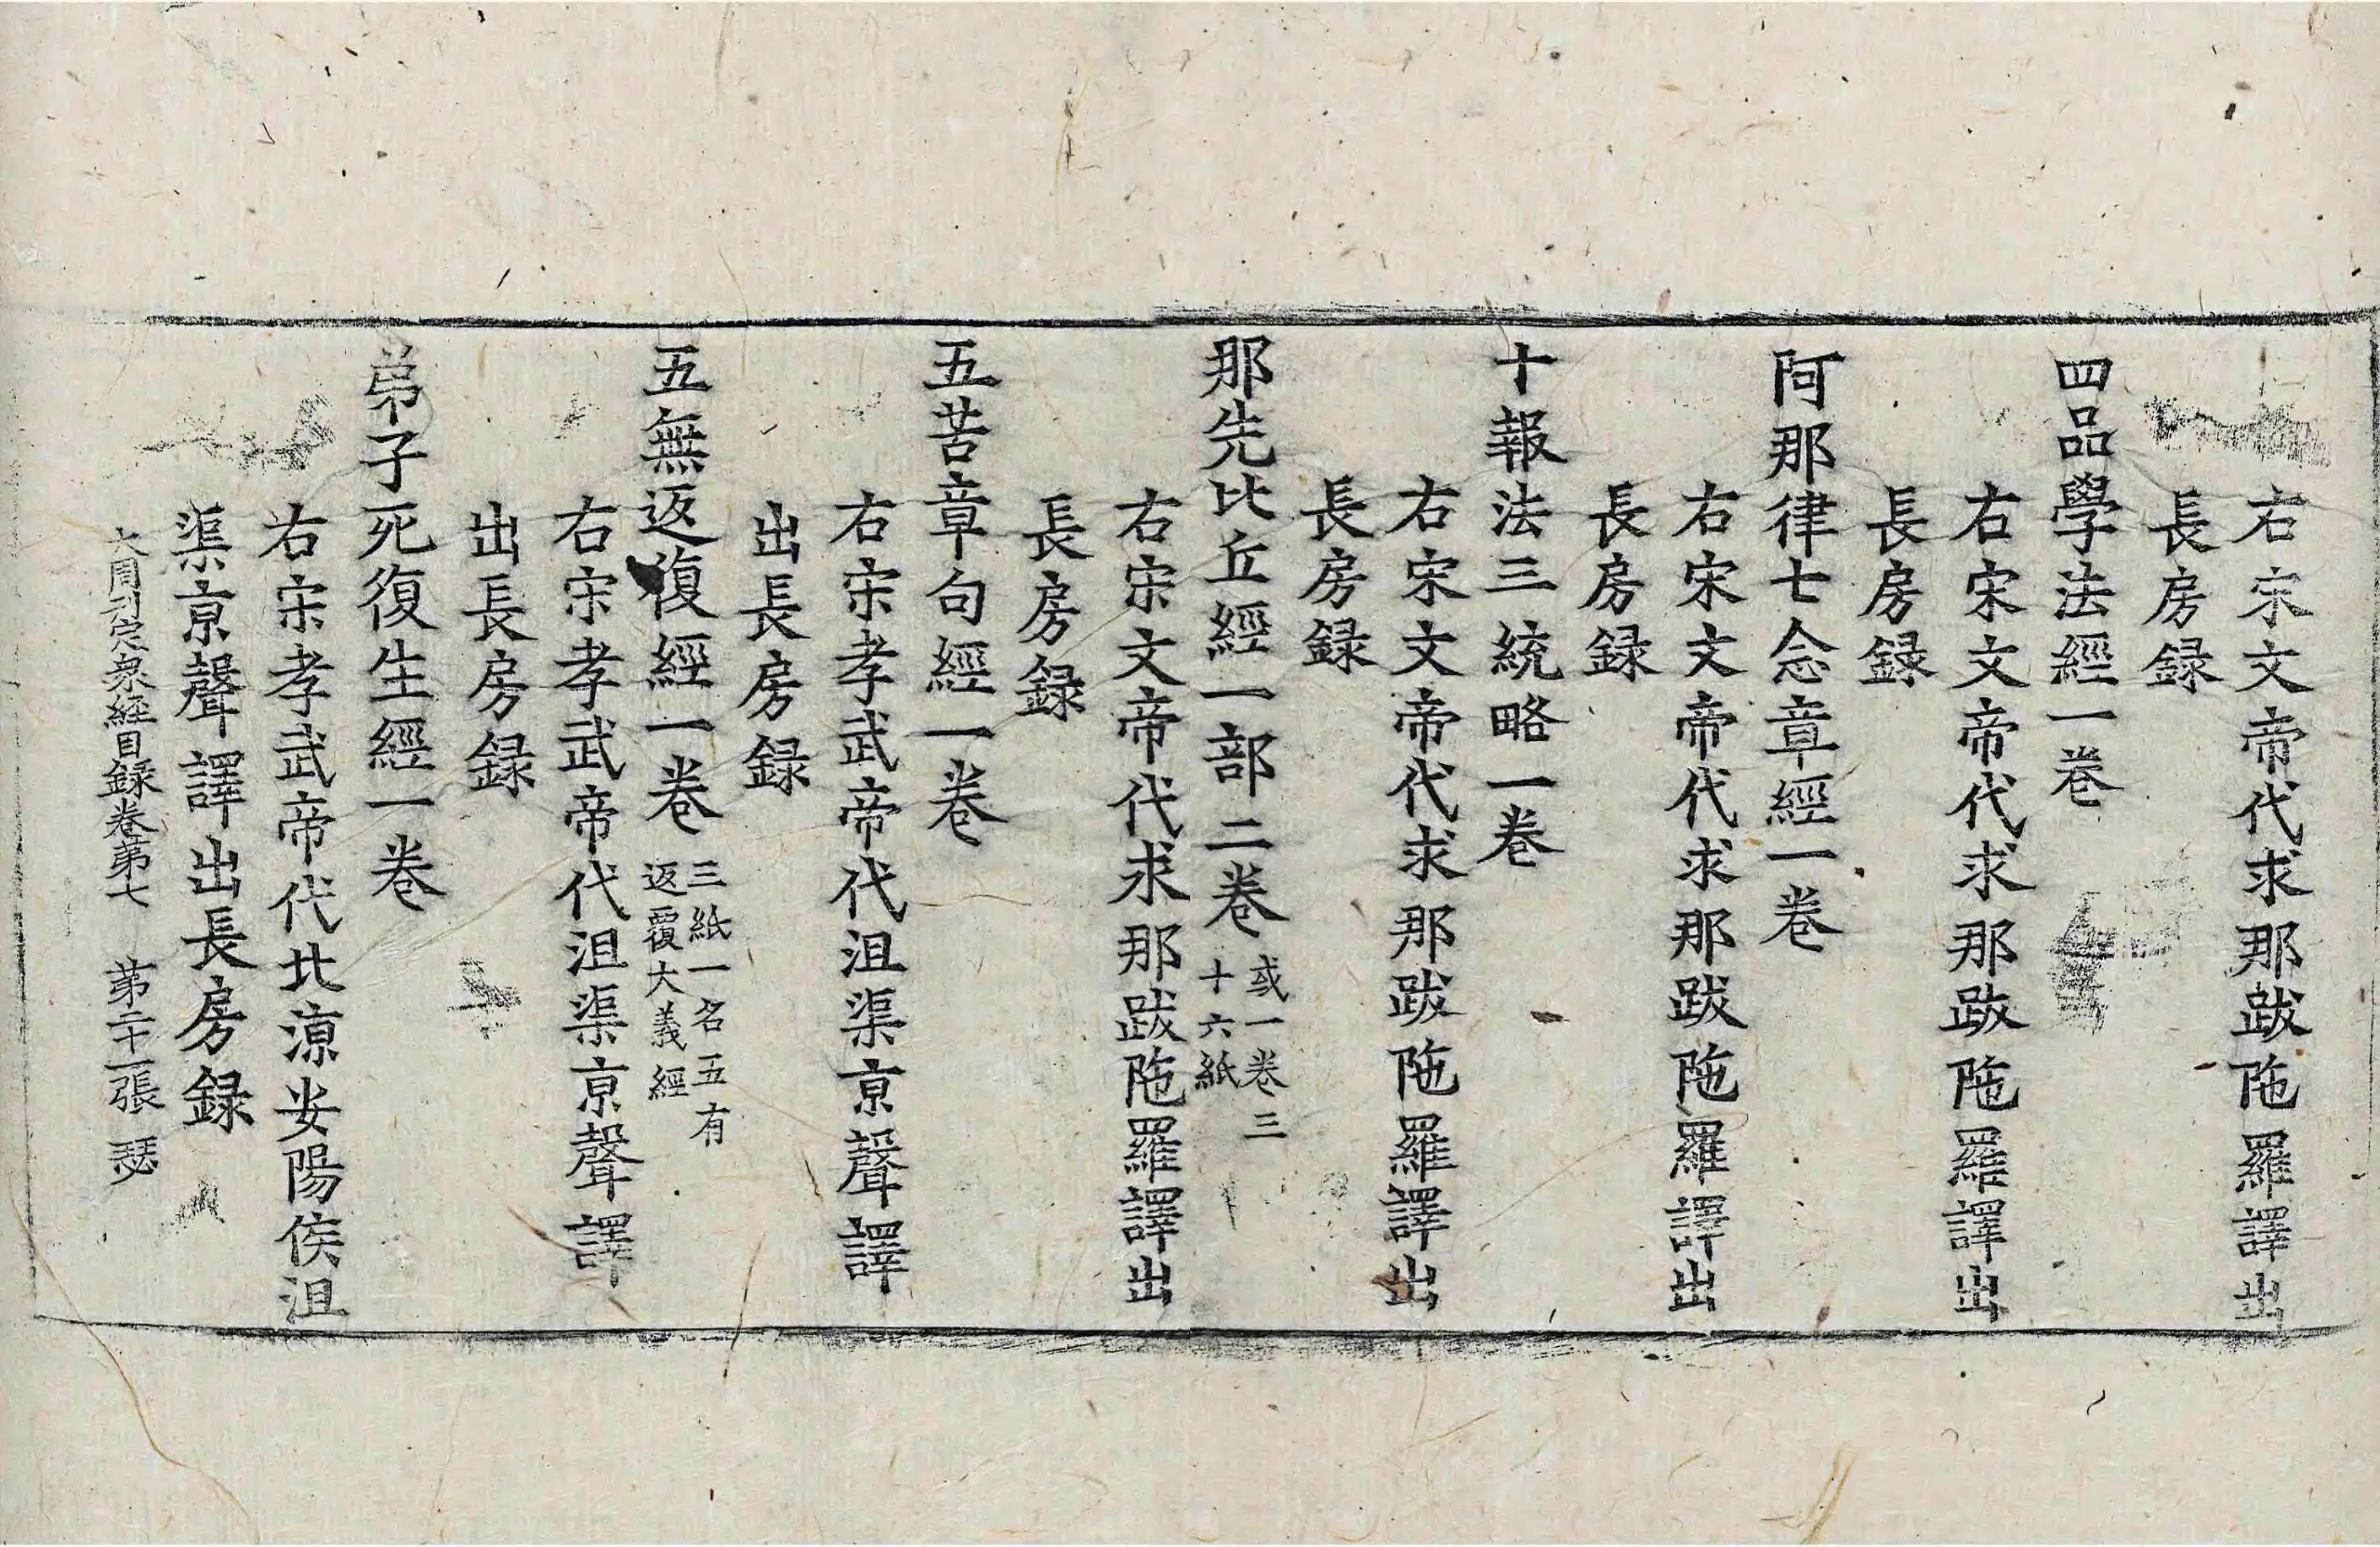 右宋文帝代求那跋陁羅譯出
長房録
四品學法經一卷
右宋文帝代求那跋陁羅譯出
長房録
阿那律七念章經一卷
右宋文帝代求那跋陁羅譯出
長房録
十報法三統略一卷
右宋文帝代求那跋陁羅譯出
長房録
那先比丘經一部二卷或一卷三
十六紙
右宋文帝代求那跋陁羅譯出
長房録
五苦章句經一卷
右宋孝武帝代沮渠亰聲譯
出長房録
五無返復經一卷三紙一名五有
返覆大義經
右宋孝武帝代沮渠亰聲譯
出長房録
弟子死復生經一卷
右宋孝武帝代北涼安陽侯沮
渠亰聲譯出長房録
大周刊定衆經目録卷苐七 苐二十一張 瑟